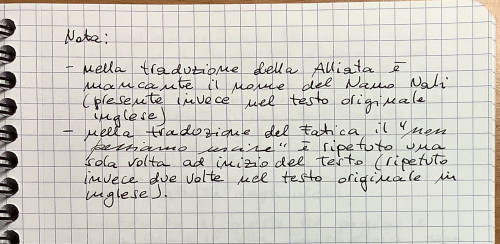 Nota:
- nella traduzione della Alliata è
mancante il nome del Nano Nali
(presente invece nel testo originale
inglese)
- nella traduzione del Fatica il "non
possiamo uscire" è ripetuto una
sola volta ad inizio del testo (ripetuto
invece due volte nel testo originale in
inglese).